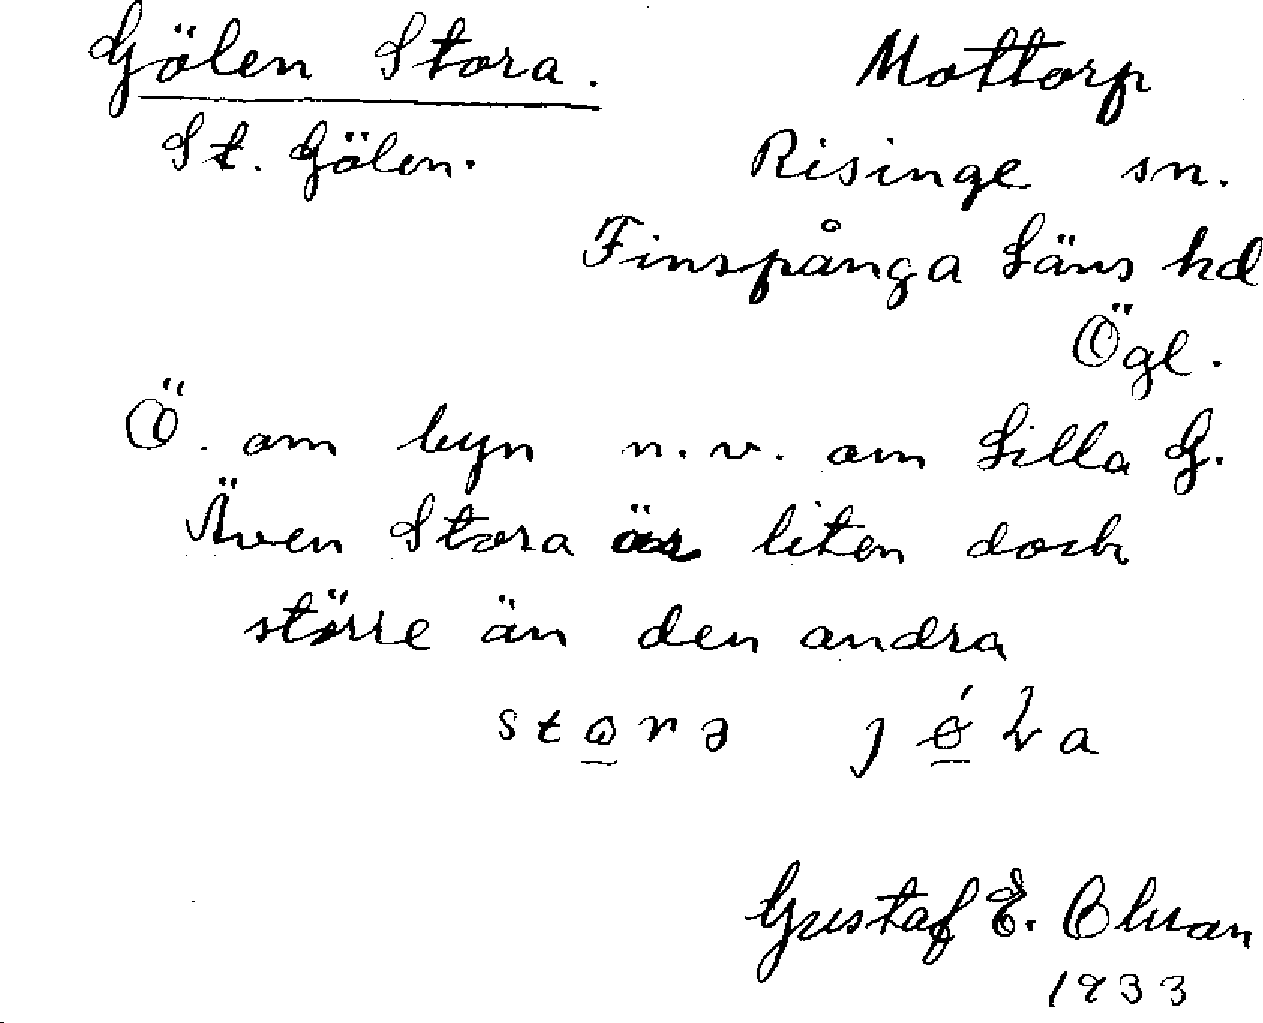 Gölen Stora. Mottorp
St. Gölen. Risinge sn.
Finspånga Läns hd
Ögl.
Ö. om byn n.v. om Lilla G.
Även Stora är liten dock
större än den andra
Gustaf E. Olson
1933